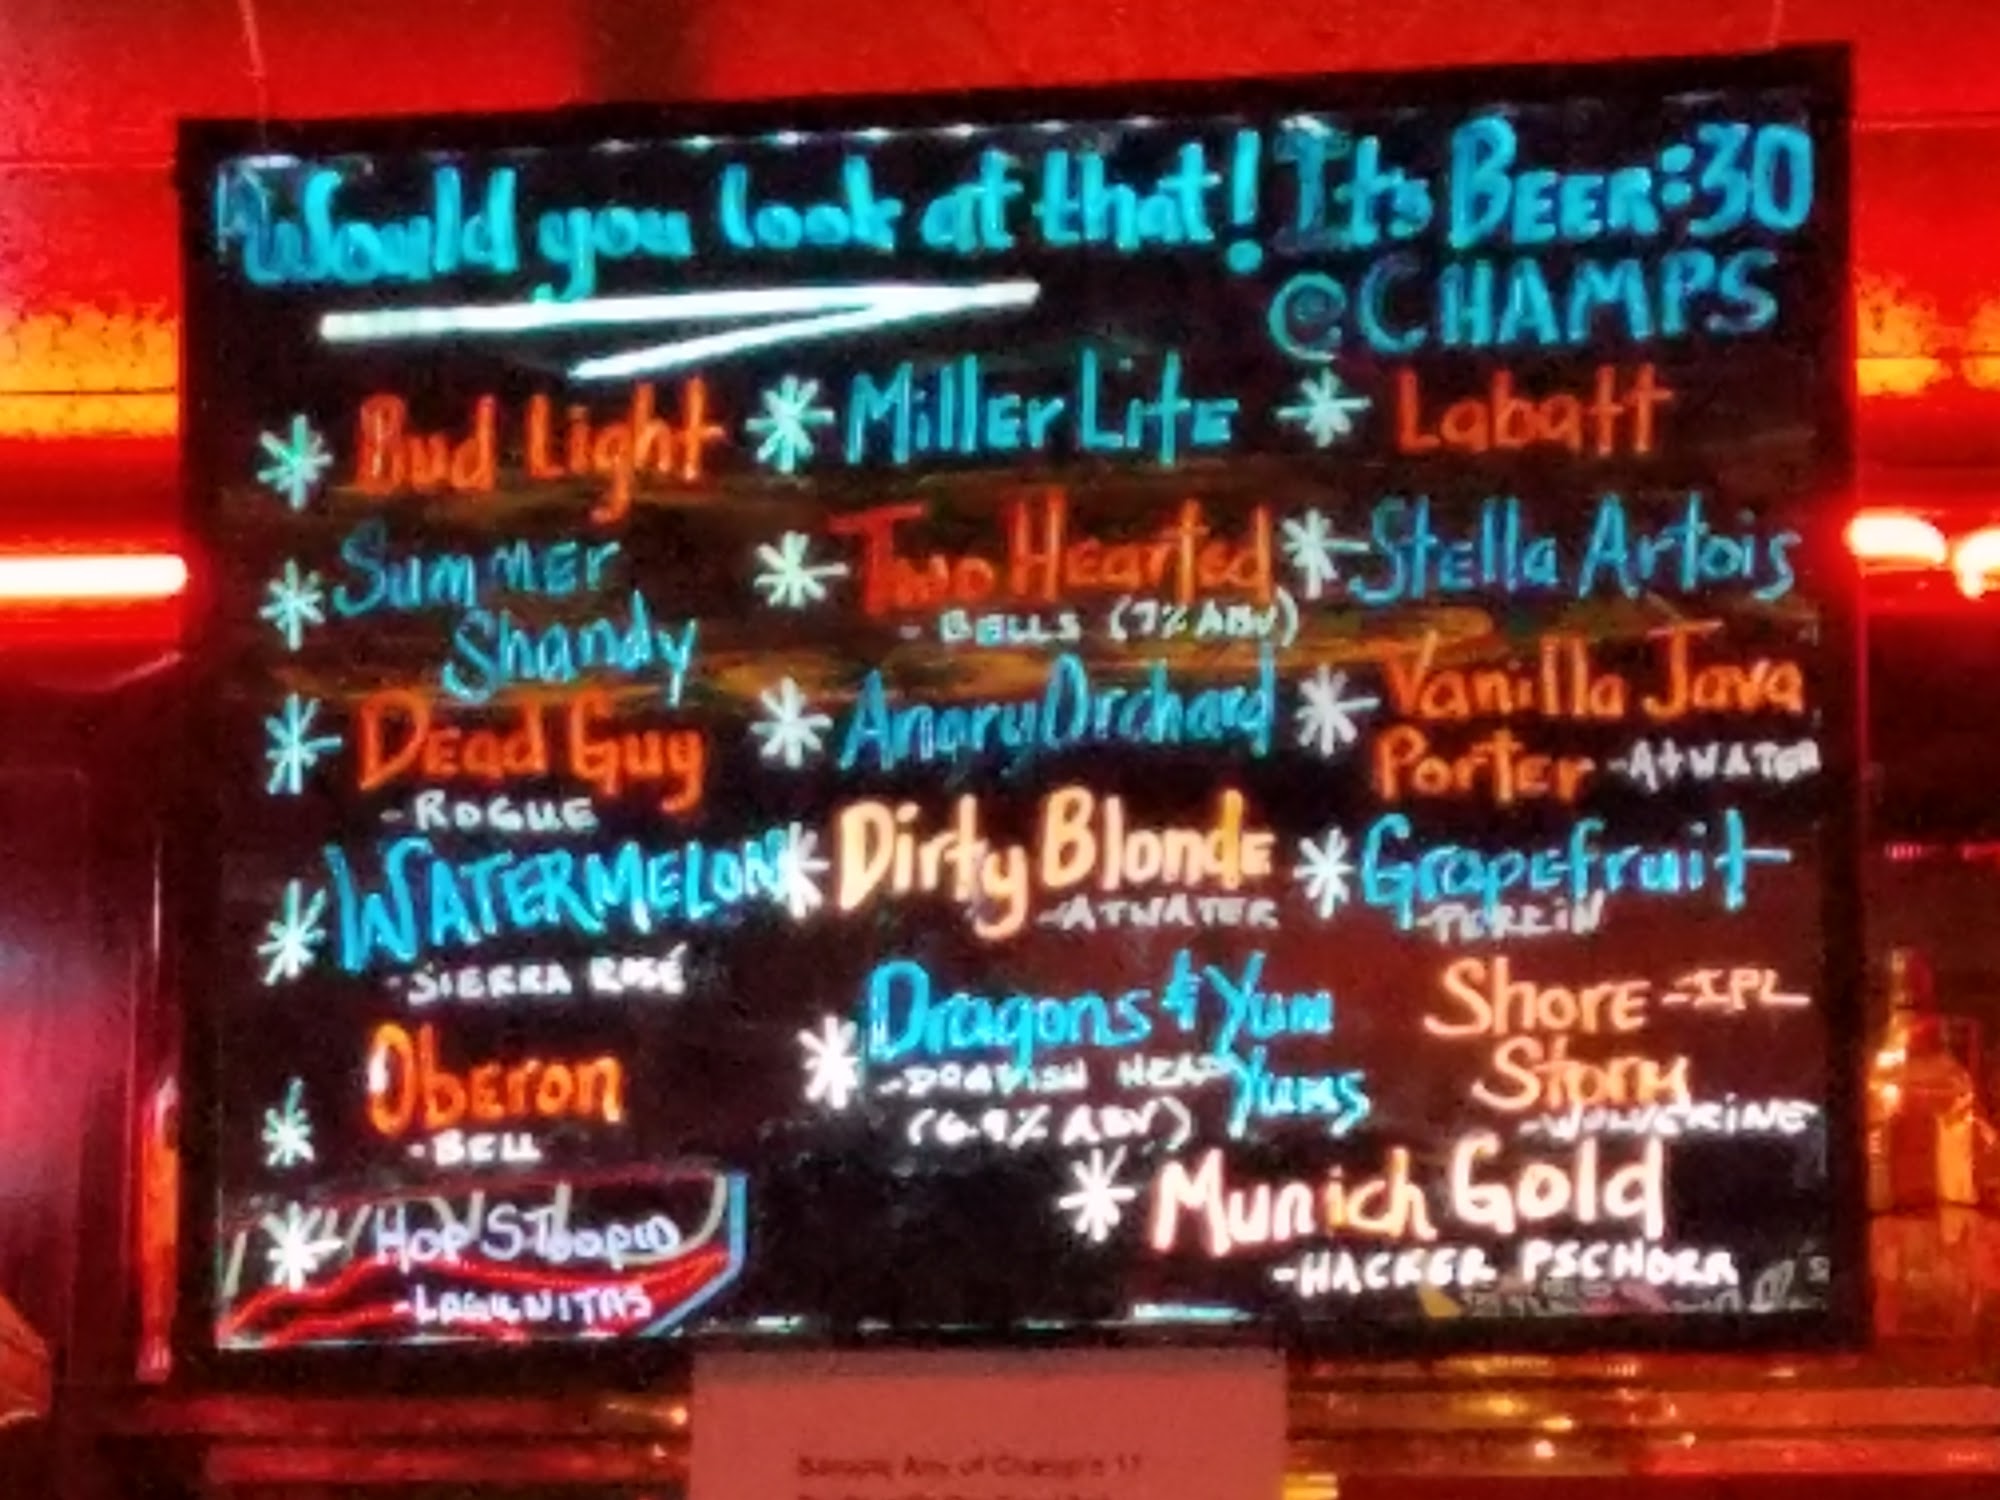 Would you look at that! It's BEER:30
@CHAMPS
* Bud Light * Miller Lite * Labatt
* Summer Shandy * Two Hearted * Stella Artois
- BELLS (7% ABV)
* Dead Guy * Angry Orchard * Vanilla Java
Porter - ATWATER
- ROGUE
* WATERMELON * Dirty Blonde * Grapefruit
- SIERRA ROSÉ - ATWATER - PERRIN
* Oberon * Dragons & Yum Yums Shore - IPL
Storm
- BELL - DOGFISH HEAD - WOLVERINE
(6.9% ABV)
* HOP STOOPID * Munich Gold
- LAGUNITAS - HACKER PSCHORR
Sample Any of Champ's 17